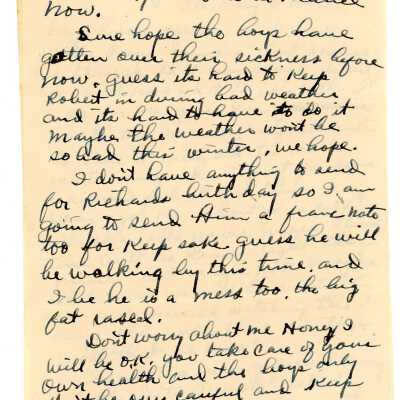 now.
Sure hope the boys have
gotten over their sickness before
now, guess its hard to keep
Robert in during bad weather
and its hard to have to do it
Maybe the weather won't be
so bad this winter, we hope.
I don't have anything to send
for Richards birthday so I am
going to send Him a franc note
too for Keep sake guess he will
be walking by this time, and
I be he is a mess too, the big
fat rascal.
Dont worry about me Honey I
will be O.K, you take care of your
own health and the boys only
be careful and keep